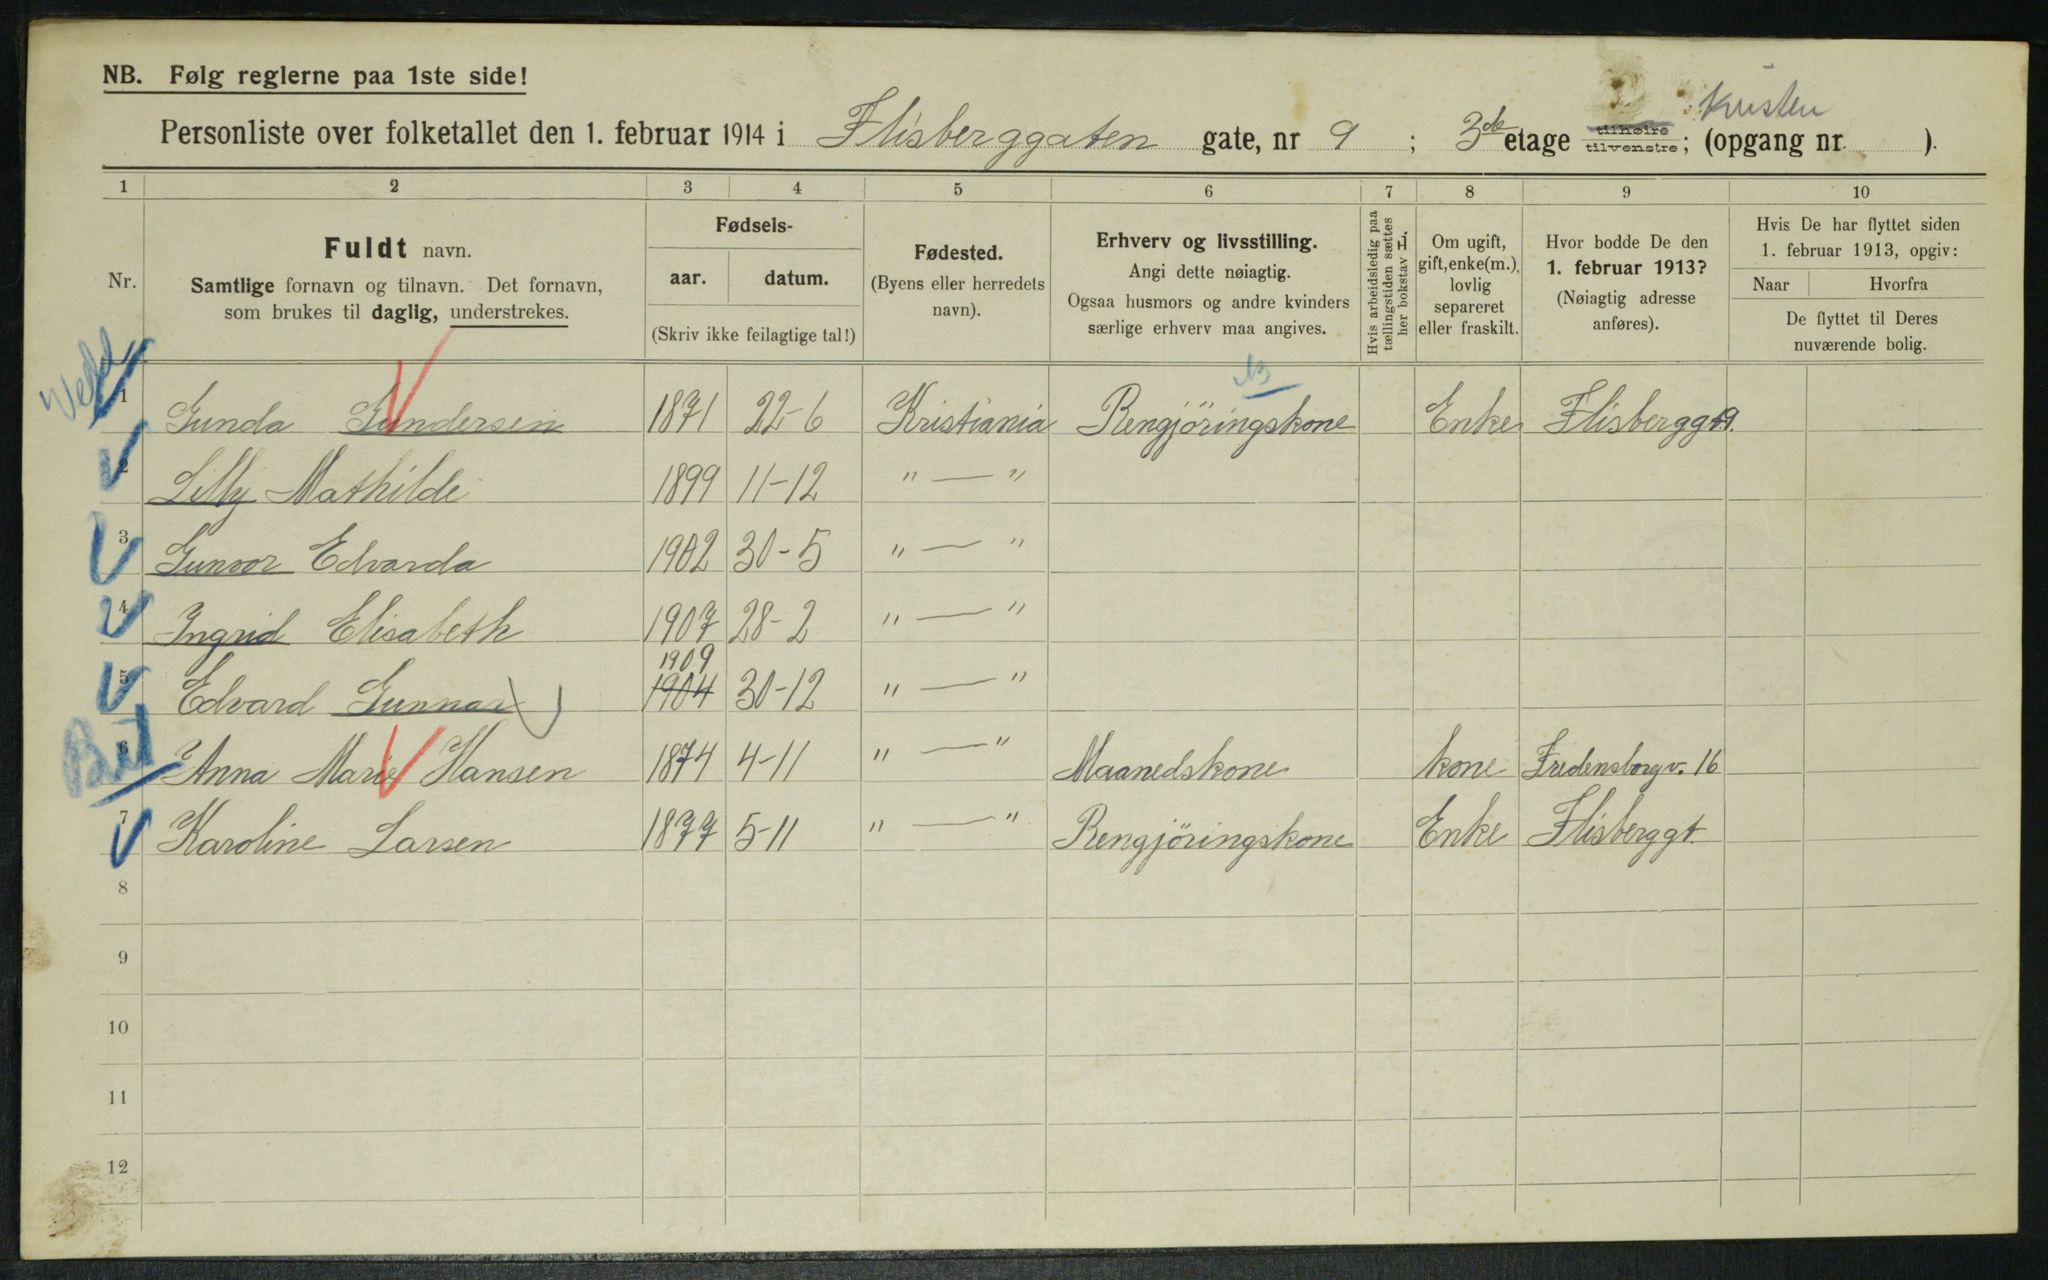 NB. Følg reglerne paa 1ste side!
kvisten
Personliste over folketallet den 1. februar 1914 i Flisberggaten gate, nr 9 ; 3de etage tilhøire tilvenstre; (opgang nr. ).
1 2 3 4 5 6 7 8 9 10
Nr.
Fuldt navn.
Samtlige fornavn og tilnavn. Det fornavn,
som brukes til daglig, understrekes.
Fødsels-
aar. datum.
(Skriv ikke feilagtige tal!)
Fødested.
(Byens eller herredets
navn).
Erhverv og livsstilling.
Angi dette nøiagtig.
Ogsaa husmors og andre kvinders
særlige erhverv maa angives.
Hvis arbeidsledig paa
tællingstiden sættes
her bokstav L.
Om ugift,
gift, enke(m.),
lovlig
separeret
eller fraskilt.
Hvor bodde De den
1. februar 1913?
(Nøiagtig adresse
anføres).
Hvis De har flyttet siden
1. februar 1913, opgiv:
Naar Hvorfra
De flyttet til Deres
nuværende bolig.
1 Gunda Gundersen 1871 22-6 Kristiania Rengjöringskone Enke Flisberggt 9.
2 Lilly Mathilde 1899 11-12 " — "
3 Gunvor Edvarda 1902 30-5 " — "
4 Ingrid Elisabeth 1907 28-2 " — "
1909
5 Edvard Gunnar 1904 30-12 " — "
6 Anna Marie Hansen 1874 4-11 " — " Maanedskone kone Fredensborgv. 16
7 Karoline Larsen 1877 5-11 " — " Rengjöringskone Enke Flisberggt.
8
9
10
11
12